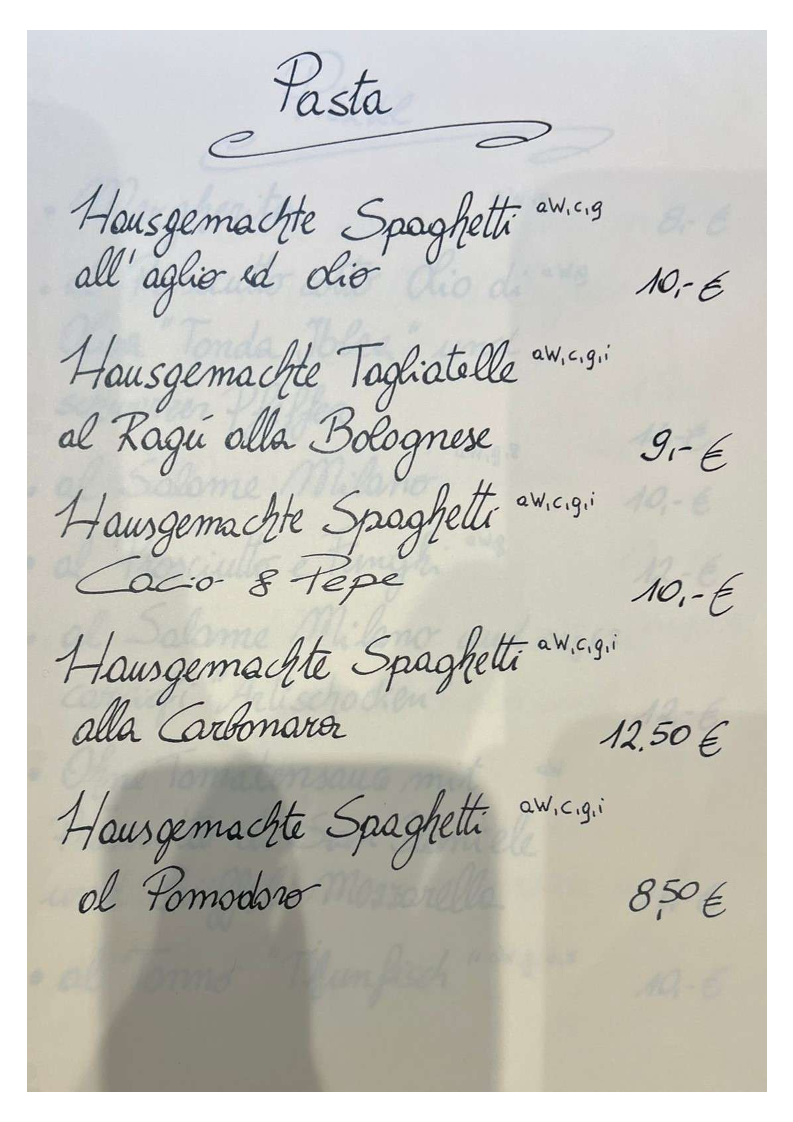 Pasta
Hausgemachte Spaghetti aW,c,g
all' aglio ed olio 10,- €
Hausgemachte Tagliatelle aW,c,g,i
al Ragú alla Bolognese 9,- €
Hausgemachte Spaghetti aW,c,g,i
Cacio & Pepe 10,- €
Hausgemachte Spaghetti aW,c,g,i
alla Carbonara 12,50 €
Hausgemachte Spaghetti aW,c,g,i
al Pomodoro 8,50 €